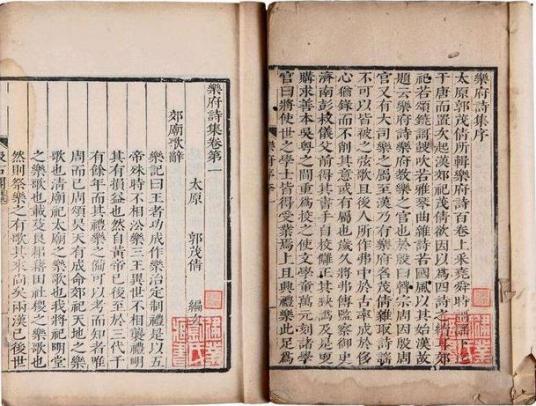 樂府詩集序
太原郭茂倩所輯樂府詩百卷上采堯舜時謌謠下迄
于唐而置次起漢郊祀茂倩欲因以爲四詩之續耳郊
祀若頌鐃謌鼓吹若雅琴曲雜詩若國風以其始漢故
題云樂府詩樂府教樂之官也於殷曰瞽宗周因殷周
官又有大司樂之屬至漢乃有樂府名茂倩雜取詩謠
不可以皆被之弦歌且後人所作弗中於古率成於侈
心猶錄而不削其意或有屬也歲久將弗傳監察御史
濟南彭叔儀父前得其書手自校讎正其缺爲及是更
購求善本吳粤之間重爲挍之使文學童萬元刻諸學
官曰將使世之學士皆得受業焉上且興禮樂此足爲
樂府詩集卷第一
太原 郭茂倩 編次
郊廟歌辭
樂記曰王者功成作樂治定制禮是以五
帝殊時不相沿樂三王異世不相襲禮明
其有損益也然自黃帝已後至於三代千
有餘年而其禮樂之備可以考而知者唯
周而已周頌昊天有成命郊祀天地之樂
歌也清廟祀太廟之樂歌也我將祀明堂
之樂歌也載芟良耜藉田社稷之樂歌也
然則祭樂之有歌其來尚矣兩漢已後世